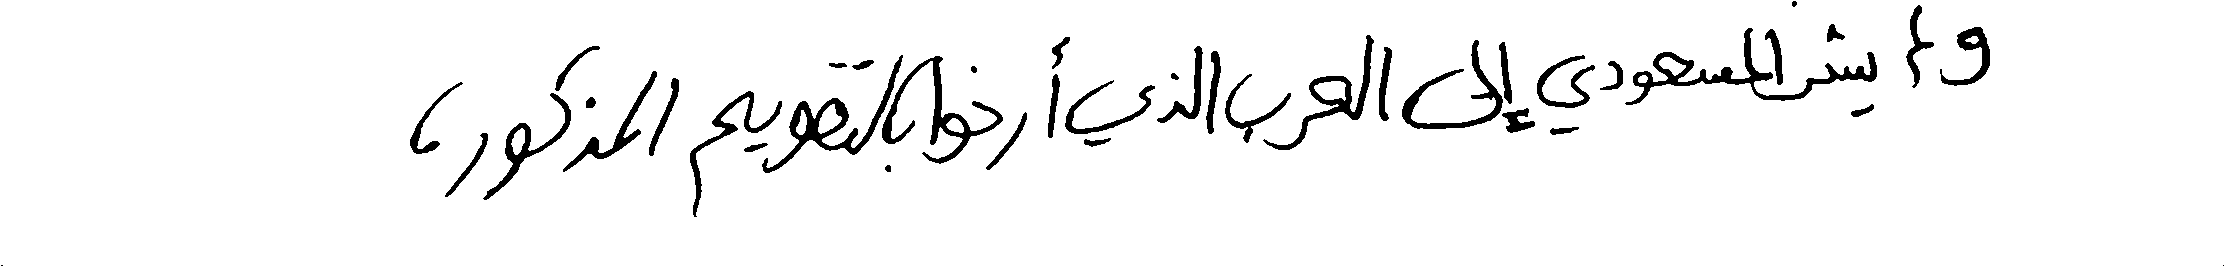 ولم يشر المسعودي إلى العرب الذي أرخوا بالتقويم المذكور،